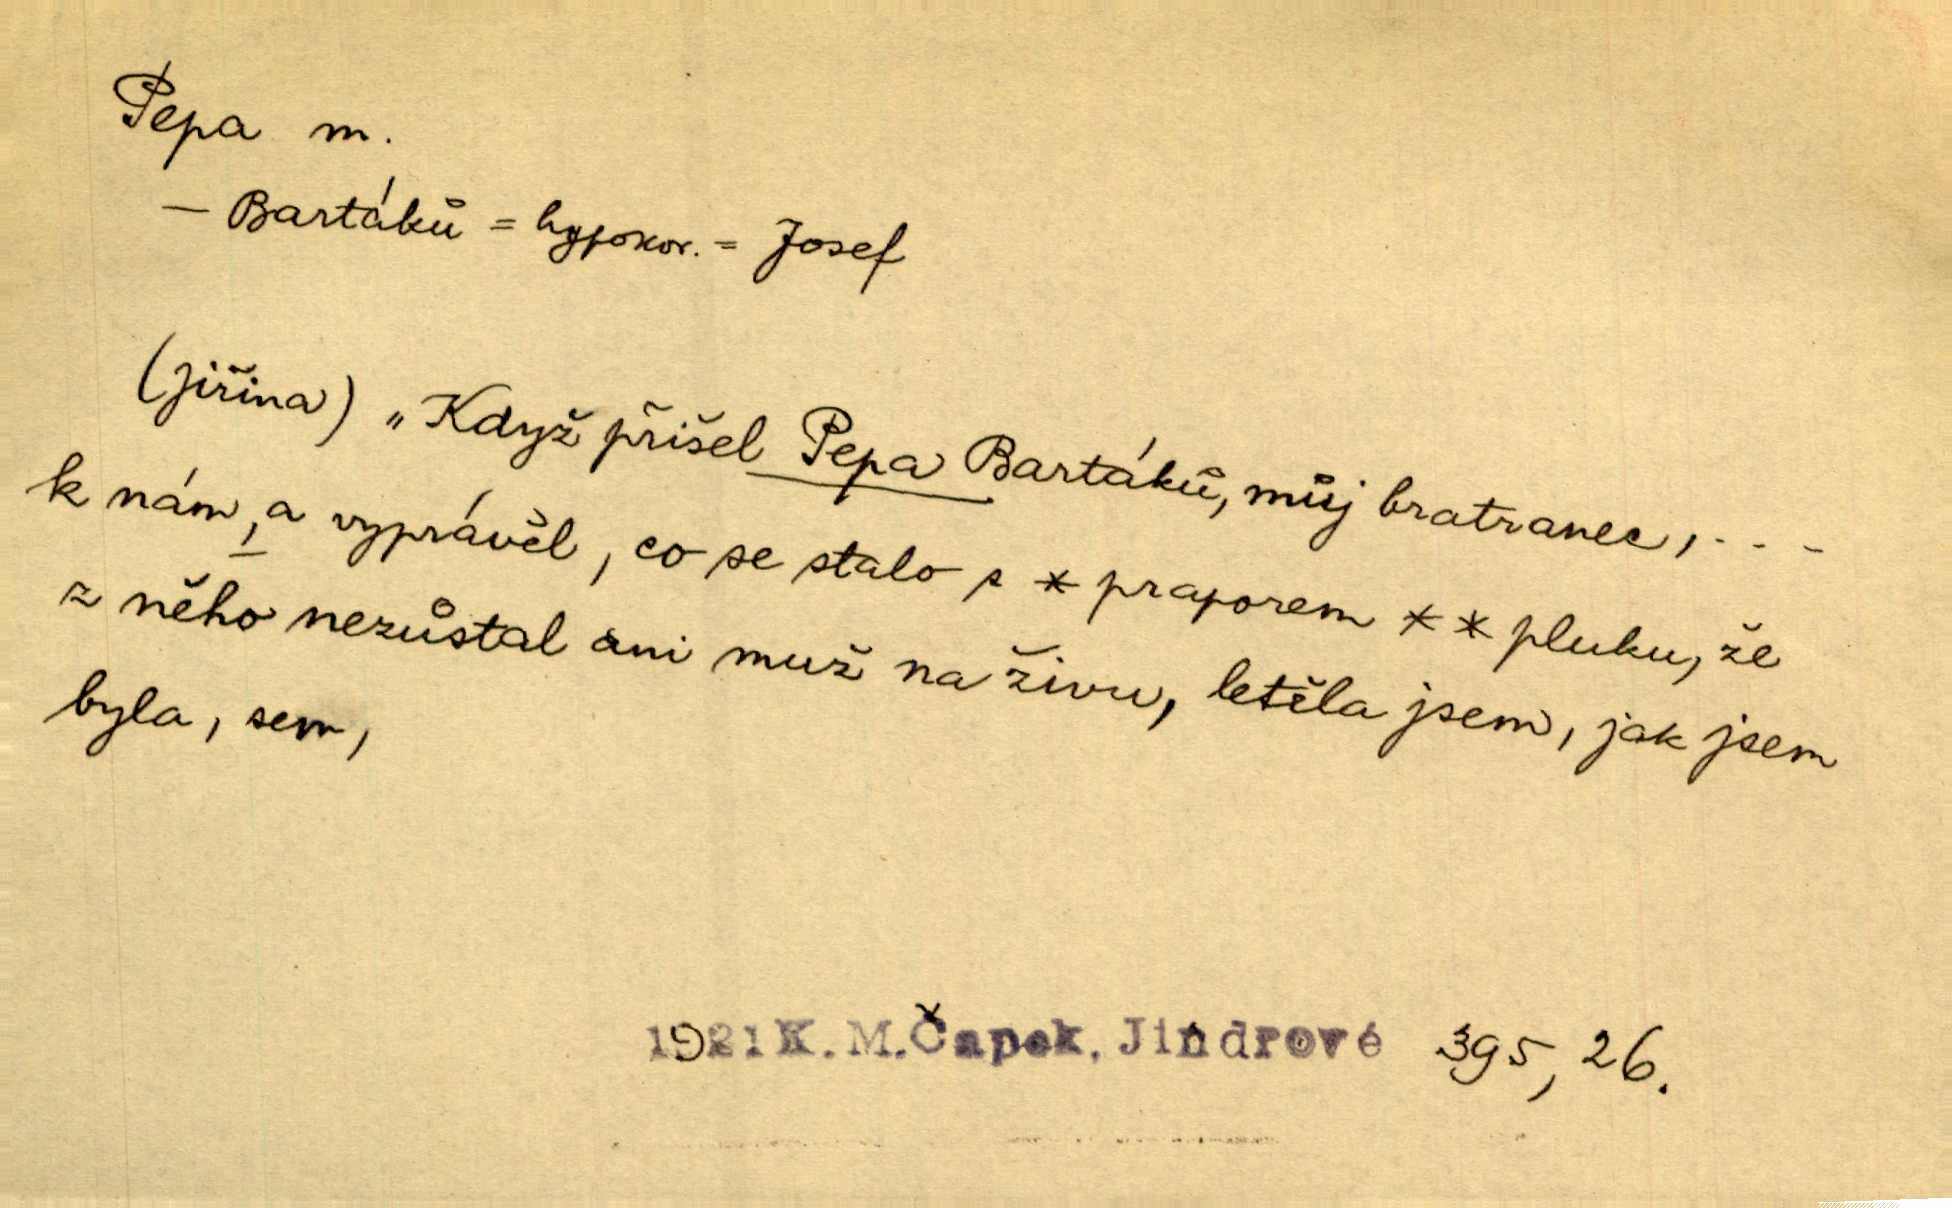 Pepa m.
— Bartáků = hypokor. = Josef
(Jiřina) „Když přišel Pepa Bartáků, můj bratranec, . - - -
k nám, a vyprávěl, co se stalo s * praporem ** pluku, že
z něho nezůstal ani muž na živu, letěla jsem, jak jsem
byla, sem,
1921 K. M. Čapek, Jindrové 395, 26.